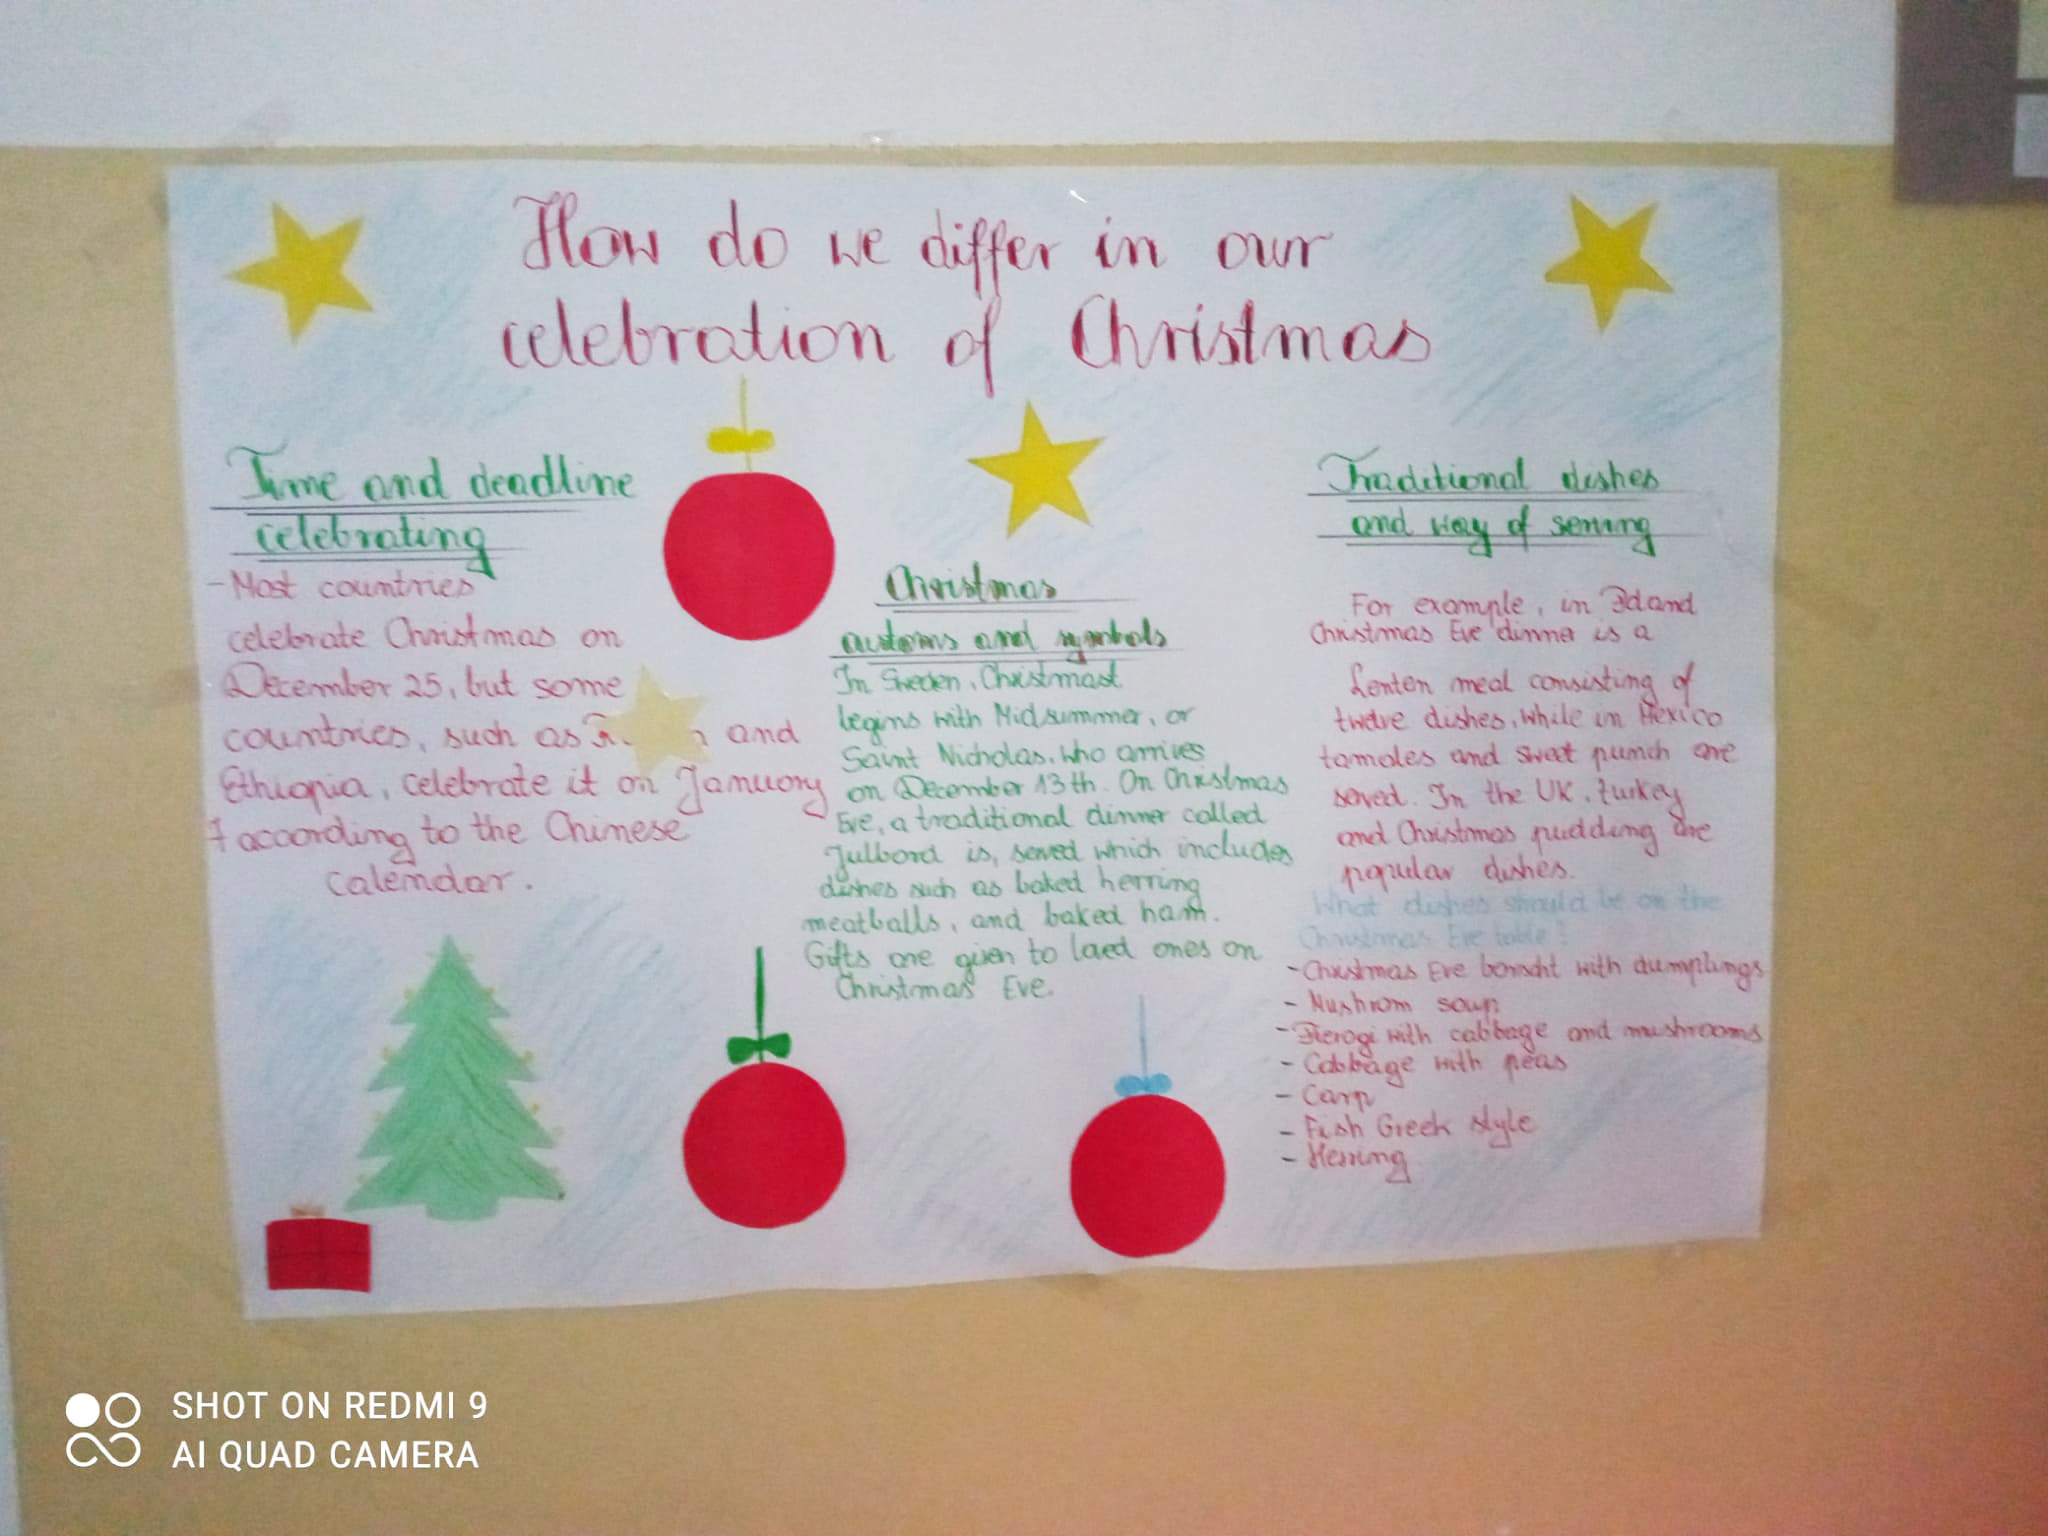 How do we differ in our
celebration of Christmas
Time and deadline
celebrating
- Most countries
celebrate Christmas on
December 25, but some
countries, such as and
Ethiopia, celebrate it on January
7 according to the Chinese
calendar.
Christmas
customs and symbols
In Sweden, Christmast
begins with Midsummer, or
Saint Nicholas, who arrives
on December 13th. On Christmas
Eve, a traditional dinner called
Julbord is, served which includes
dishes such as baked herring
meatballs, and baked ham.
Gifts are given to loved ones on
Christmas Eve.
Traditional dishes
and way of serving
For example, in
Christmas Eve dinner is a
Lenten meal consisting of
twelve dishes, while in Mexico
tamales and sweet punch are
served. In the UK, turkey
and Christmas pudding are
popular dishes.
What dishes should be on the
Christmas Eve table?
- Christmas Eve borscht with dumplings
- Mushrom soup
- Pierogi with cabbage and mushrooms
- Cabbage with peas
- Carp
- Fish Greek style
- Herring
SHOT ON REDMI 9
AI QUAD CAMERA